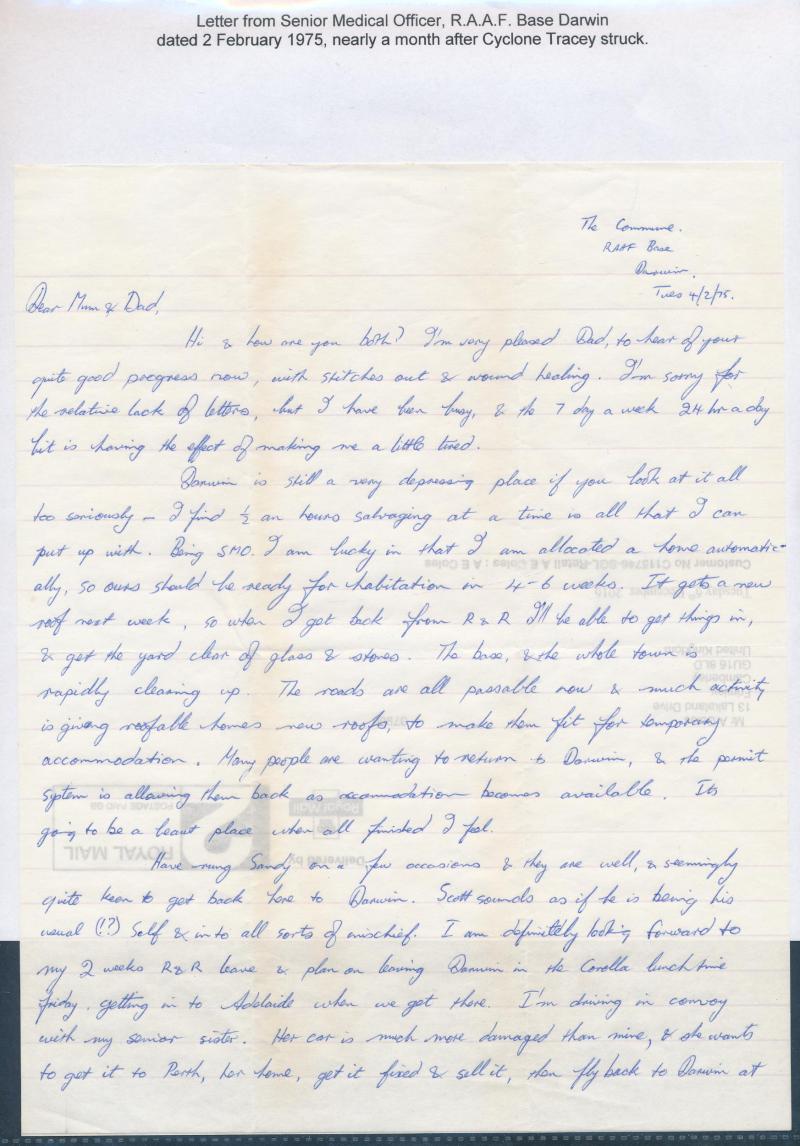 Letter from Senior Medical Officer, R.A.A.F. Base Darwin
dated 2 February 1975, nearly a month after Cyclone Tracey struck.
The Commune.
RAAF Base
Darwin.
Tues 4/2/75.
Dear Mum & Dad,
Hi & how are you both? I'm very pleased Dad, to hear of your
quite good progress now, with stitches out & wound healing. I'm sorry for
the relative lack of letters, but I have been busy, & the 7 day a week 24 hr a day
bit is having the effect of making me a little tired.
Darwin is still a very depressing place if you look at it all
too seriously - I find ½ an hours salvaging at a time is all that I can
put up with. Being SMO. I am lucky in that I am allocated a home automatic-
ally, so ours should be ready for habitation in 4-6 weeks. It gets a new
roof next week, so when I get back from R & R I'll be able to get things in,
& get the yard clear of glass & stones. The base, & the whole town is
rapidly cleaning up. The roads are all passable now & much activity
is giving roofable homes new roofs, to make them fit for temporary
accommodation. Many people are wanting to return to Darwin, & the permit
system is allowing them back as accomodation becomes available. Its
going to be a beaut place when all finished I feel.
Have rung Sandy on a few occasions & they are well, & seemingly
quite keen to get back here to Darwin. Scott sounds as if he is being his
usual (!?) self & into all sorts of mischief. I am definitely looking forward to
my 2 weeks R&R leave & plan on leaving Darwin in the Corolla lunch time
Friday. getting in to Adelaide when we get there. I'm driving in convoy
with my senior sister. Her car is much more damaged than mine, & she wants
to get it to Perth, her home, get it fixed & sell it, then fly back to Darwin at
Customer No C115746-SGL-Retail A E Coles : A E Coles
United Kingdom
GU16 8LD
Camberley
13 Lakeland Drive
Delivered by
Royal Mail
ROYAL MAIL
POSTAGE PAID GB
2